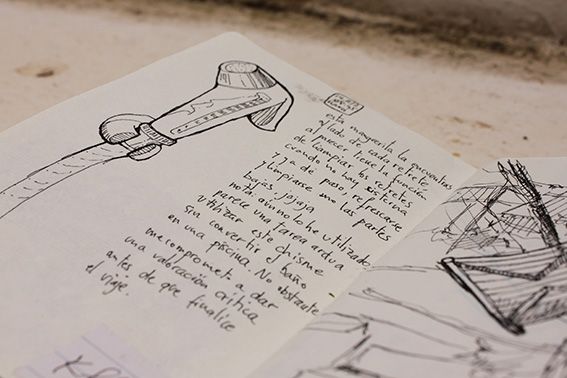 esta manguerita la encuentras
al lado de cada retrete
al parecer tiene la función
de limpiar los retretes
cuando no hay sisterna
y ya de paso, refrescarse
y limpiarse uno las partes
bajas, jajaja
nota: aún no lo he utilizado
parece una tarea ardua
utilizar este chisme
sin convertir el baño
en una piscina. No obstante
me comprometo a dar
una valoración crítica
antes de que finalice
el viaje.